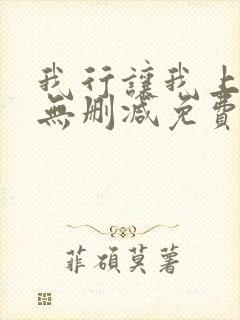 我行讓我上
無刪減免費
菲碩莫著